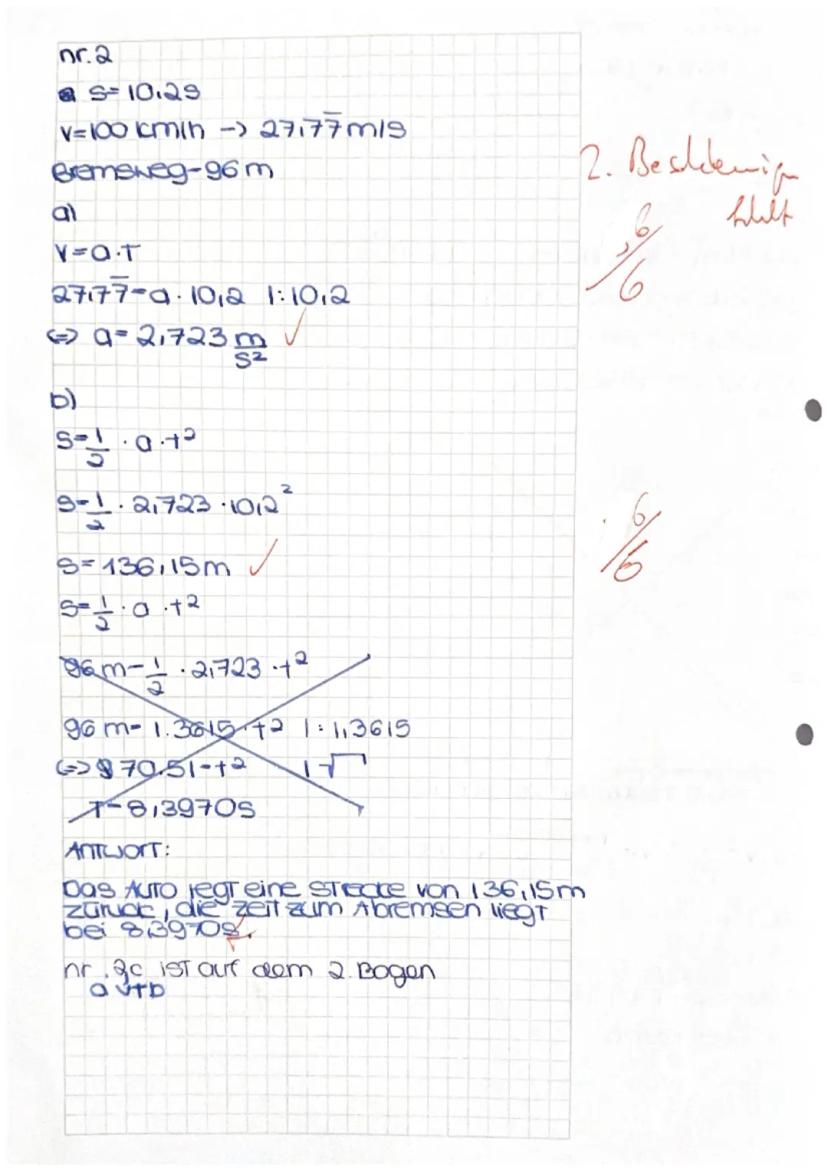 nr. 2
s=10,2s
v=100 km/h -> 27,77 m/s
Bremsweg-96m
a)
v=a·T
27,77=a·10,2 |:10,2
<=> a=2,723 m/s² ✓
b)
s=1/2·a·t²
s=1/2·2,723·10,2²
s=136,15m ✓
s=1/2·a·t²
96m=1/2·2,723·t²
96m=1.3615·t² |:1,3615
<=> 70.51=t² |√
T=8,3970s
ANTWORT:
Das Auto legt eine Strecke von 136,15m
zurück, die Zeit zum Abremsen liegt
bei 8,3970s.
nr. 2c ist auf dem 2. Bogen
a u+b
2.
6/6
6/6